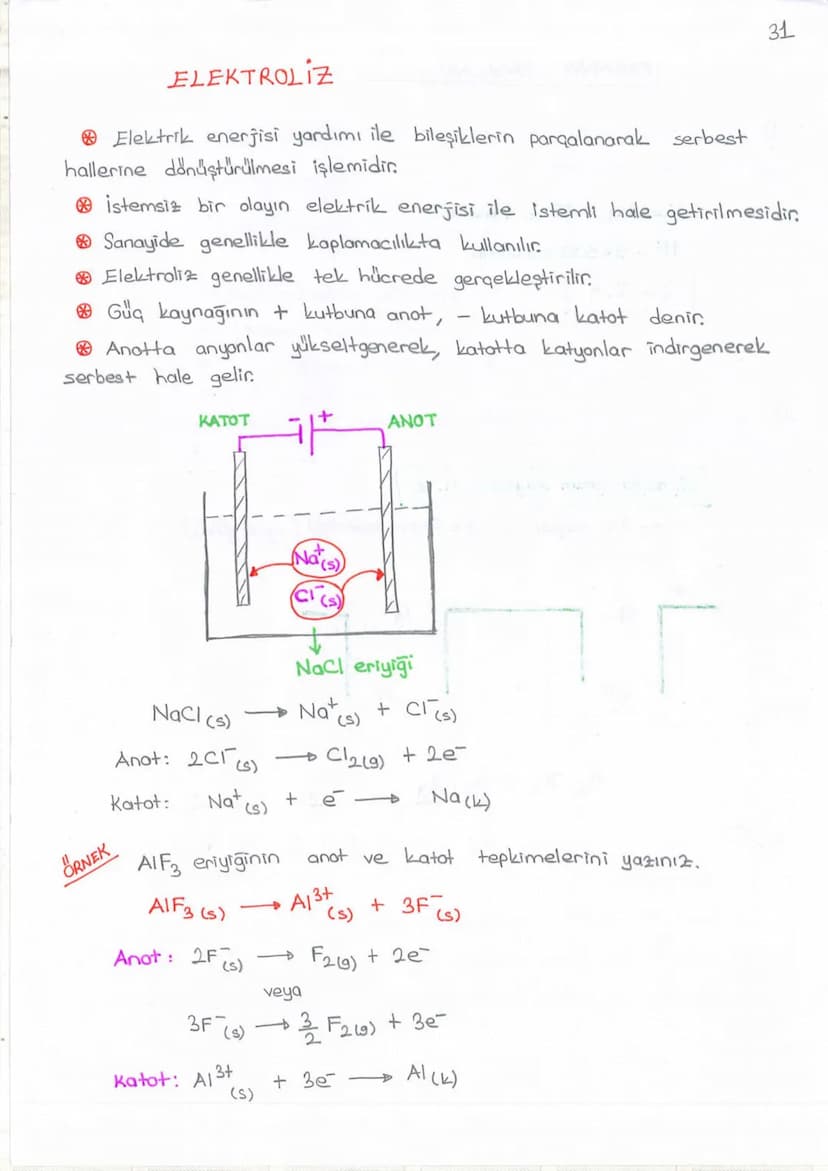 31
ELEKTROLİZ
⊛ Elektrik enerjisi yardımı ile bileşiklerin parçalanarak serbest
hallerine dönüştürülmesi işlemidir.
⊛ İstemsiz bir olayın elektrik enerjisi ile istemli hale getirilmesidir.
⊛ Sanayide genellikle kaplamacılıkta kullanılır.
⊛ Elektroliz genellikle tek hücrede gerçekleştirilir.
⊛ Güç kaynağının + kutbuna anot, - kutbuna katot denir.
⊛ Anotta anyonlar yükseltgenerek, katotta katyonlar indirgenerek
serbest hale gelir.
KATOT - + ANOT
Na⁺(s)
Cl⁻(s)
NaCl eriyiği
NaCl(s) → Na⁺(s) + Cl⁻(s)
Anot: 2Cl⁻(s) → Cl₂(g) + 2e⁻
Katot: Na⁺(s) + e⁻ → Na(k)
ÖRNEK AlF₃ eriyiğinin anot ve katot tepkimelerini yazınız.
AlF₃(s) → Al³⁺(s) + 3F⁻(s)
Anot: 2F⁻(s) → F₂(g) + 2e⁻
veya
3F⁻(s) → 3/2 F₂(g) + 3e⁻
Katot: Al³⁺(s) + 3e⁻ → Al(k)